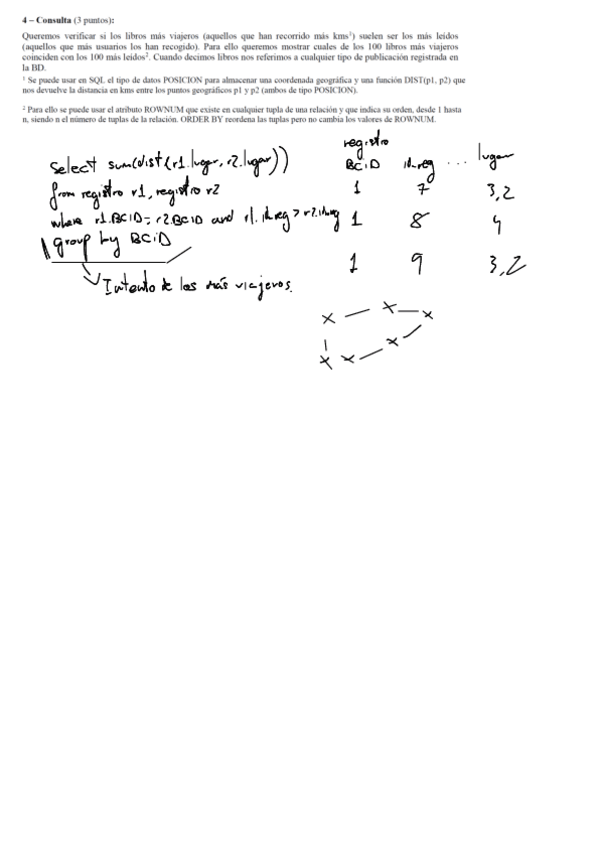 4 – Consulta (3 puntos):
Queremos verificar si los libros más viajeros (aquellos que han recorrido más kms¹) suelen ser los más leídos
(aquellos que más usuarios los han recogido). Para ello queremos mostrar cuales de los 100 libros más viajeros
coinciden con los 100 más leídos². Cuando decimos libros nos referimos a cualquier tipo de publicación registrada en
la BD.
¹ Se puede usar en SQL el tipo de datos POSICION para almacenar una coordenada geográfica y una función DIST(p1, p2) que
nos devuelve la distancia en kms entre los puntos geográficos p1 y p2 (ambos de tipo POSICION).
² Para ello se puede usar el atributo ROWNUM que existe en cualquier tupla de una relación y que indica su orden, desde 1 hasta
n, siendo n el número de tuplas de la relación. ORDER BY reordena las tuplas pero no cambia los valores de ROWNUM.
select sum(dist(r1.lugar, r2.lugar))
from registro r1, registro r2
where r1.BCID = r2.BCID and r1.id_reg > r2.id_reg
group by BCiD
Intento de los más viajeros.
registro
BCiD id_reg ... lugar
1 7 3,2
1 8 4
1 9 3,2